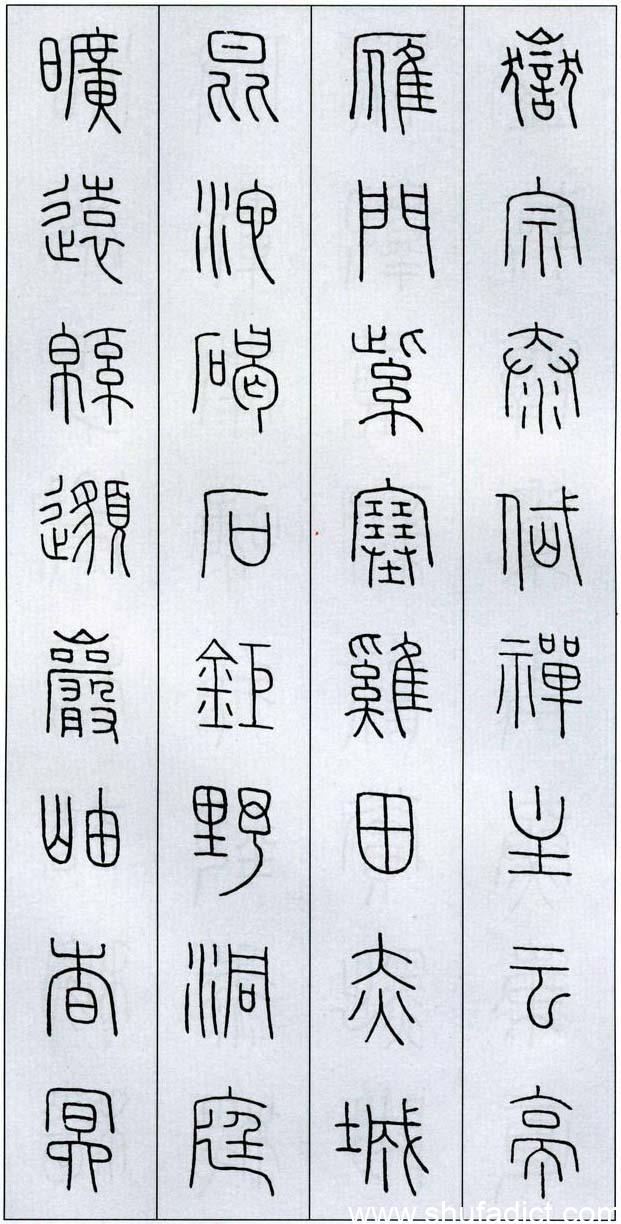 嶽宗泰岱禪主云亭
雁門紫塞雞田赤城
昆池碣石鉅野洞庭
曠遠緜邈巖岫杳冥
www.shufadict.com